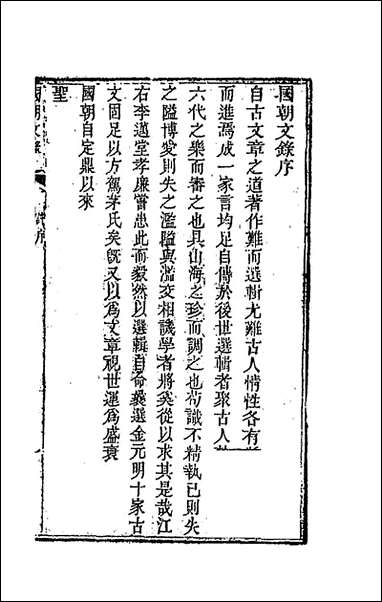 國朝文錄序
自古文章之道著作難而選輯尤難古人情性各有
而進焉成一家言均足自傳於後世選輯者聚古人
六代之樂而審之也具山海之珍而調之也苟識不精執己則失
之隘博愛則失之濫隘與濫交相譏學者將奚從以求其是哉江
右李邁堂孝廉嘗患此而毅然以選輯自命曩選金元明十家古
文固足以方駕茅氏矣旣又以爲文章視世運爲盛衰
國朝自定鼎以來
聖
國朝文錄
序